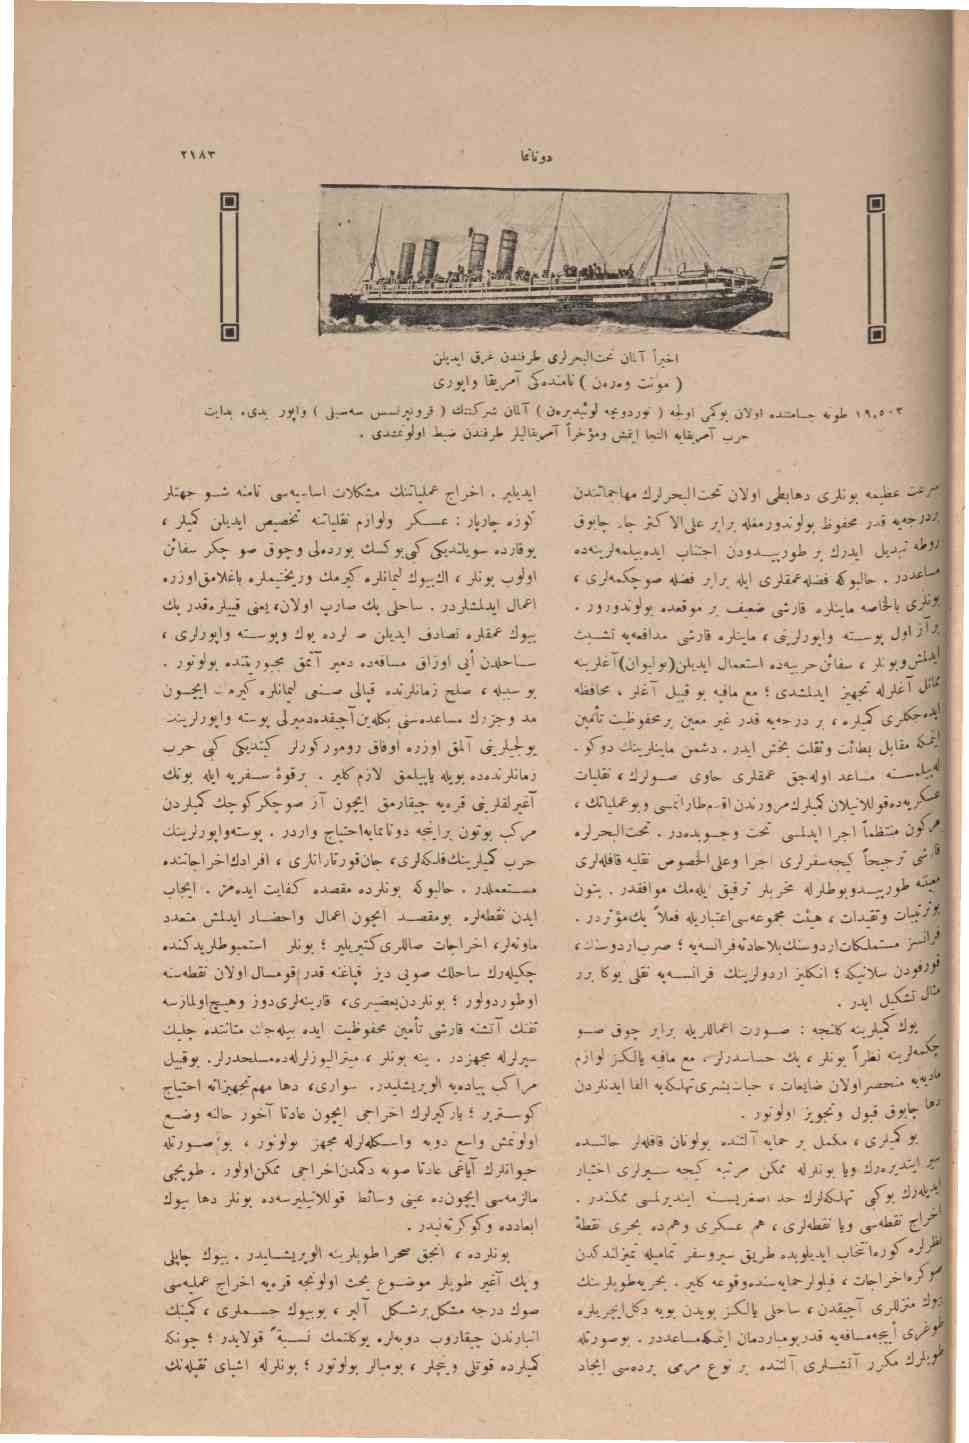 ٢١٨٣
دونانما
اخيراً آلمان تحت‌البحرلرى طرفندن غرق ايديلن
( مونت وه‌رنون ) نامنده‌كى آمريقا واپورى
١٩,٥٠٣ طونه جسامتنده اولان بوكمى اولجه ( نوردويچه لوئيدبره‌ن ) آلمان شركتنك ( قرونپرنسس سه‌سيلى ) واپور يدى. بدايت
حرب آمريقايه التجا ايتمش ومؤخراً آمريقاليلر طرفندن ضبط اولونمشدى .
سرعت عظيمه بونلرى دهابطى اولان تحت‌البحرلرك مهاجماتندن
بردرجه‌يه قدر محفوظ بولوندورمغله برابر على‌الاكثر چار چابوق
روطه تبديل ايدرك بر طورپيدودن اجتناب ايده‌بيلمه‌لرينه‌ده
مساعددر . حالبوكه فضله‌عمقلرى ايله برابر فضله صوچكمه‌لرى ،
بونلرى بالخاصه ماينلره قارشى ضعيف بر موقعده بولوندورور .
برآز اول پوسته واپورلرينى ، ماينلره قارشى مدافعه‌يه تشبث
ايدلمش وبونلر ، سفائن‌حربيه‌ده استعمال ايديلن(بوليوان)آغلرينه
مماثل آغلرله تجهيز ايدلمشدى ؛ مع مافيه بو قبيل آغلر ، محافظه
ايده‌جكلرى كميلره ، بر درجه‌يه قدر غير معين برمحفوظيت تأمين
ايتمكه مقابل بطائت وثقلت بخش ايدر. دشمن ماينلرينك دوكو.
له‌بيلمه‌سنه مساعد اوله‌جق عمقلرى حاوى صولرك ، نقليات
عسكريه‌ده‌قوللانيلان كميلرك‌مرورندن اقدم‌طارانمسى وبوعملياتك ،
هركون منتظماً اجرا ايدلمسى تحت وجوبده‌در. تحت‌البحرلره
قارشى ترجيحاً كيجه‌سفرلرى اجرا وعلى‌الخصوص نقليه قافله‌لرى
معيتنه طورپيدوبوطلرله مخربلر ترفيق ايله‌مك موافقدر. بتون
بوترتيبات وتقيدات ، هيئت مجموعه‌سى‌اعتباريله فعلاً پك‌مؤثردر.
فرانسز مستملكات‌اردوسنك‌بلاحادثه‌فرانسه‌يه ؛ صرب‌اردوسنك ،
قورفودن سلانيكه ؛ انكليز اردولرينك فرانسه‌يه نقلى بوكا برر
مثال تشكيل ايدر .
يوك كميلرينه كلنجه : صورت اعماللريله برابر چوق صو
چكمه‌لرينه نظراً بونلر ، پك حساسدرلر. مع مافيه يالكز لوازم
ماديه‌يه منحصراولان ضايعات ، حيات‌بشرى‌تهلكه‌يه القا ايدنلردن
دها چابوق قبول وتجويز اولونور .
بوكميلرى ، مكمل بر حمايه آلتنده بولونان قافله‌لر حالنده
سير ايتديرمه‌رك ويا بونلرله ممكن مرتبه كيجه سيرلرى اختيار
ايديله‌رك بوكبى تهلكه‌لرك حد اصغريسنه اينديرلمسى ممكندر.
اخراج نقطه‌سى ويا نقطه‌لرى ، هم عسكرى وهم‌ده بحرى نقطهٔ
نظرلره كوره‌انتخاب ايديلوبده طريق سيروسفر تماميله تميزلندكدن
صوكره‌اخراجات ، فيلولرحمايه‌سنده‌وقوعه كلير. بحريه‌طوپلرينك
بيوك منزللرى آچيقدن ، ساحلى يالكز بويدن بويه دكل‌ايچريلره
طوغرى آييجه‌مسافه‌يه قدربومباردمان ايتمكه‌مساعددر. بوصورتله
طوپلرك مكرر آتشلرى آلتنده بر نوع مرمى پرده‌سى ايجاد
ايديلير . اخراج عملياتنك مشكلات اساسيه‌سى نامنه شو جهتلر
كوزه چارپار : عسكر ولوازم نقلياتنه تخصيص ايديلن كميلر ،
يوقارده سويلنديكى كبى‌يوكسك بورده‌لى وچوق صو چكر سفائن
اولوب بونلر ، اك‌بيوك ليمانلره كيرمك وريختيملره باغلامق‌اوزره
اعمال ايدلمشلردر. ساحلى پك صارپ اولان، يعنى قييلره‌قدر پك
بيوك عمقلره تصادف ايديلن صولرده يوك وپوسته واپورلرى ،
ساحلدن آيى اوزاق مسافه‌ده دمير آتمق مجبوريتنده بولونور .
بو سببله ، صلح زمانلرنده قپالى صنعى ليمانلره كيرمك ايچون
مد وجزرك مساعده‌سنى بكله‌ين‌آچيقده‌دميرلى پوسته واپورلرينك
يولجيلرينى آلمق اوزره اوفاق روموركورلر كيتديكى كبى حرب
زمانلرنده‌ده بويله ياپيلمق لازم كلير . برقوهٔ سفريه ايله بونك
آغيرلقلرينى قره‌يه چيقارمق ايچون آز صوچكركوچك كميلردن
مركب بوتون براينجه دونانمايه‌احتياج واردر. پوسته‌واپورلرينك
حرب كميلرينك‌فلكه‌لرى، جان‌قورتارانلرى ، افرادك‌اخراجاتنده
مستعملدر. حالبوكه بونلرده مقصده كفايت ايده‌مز. ايجاب
ايدن نقطه‌لره بومقصد ايچون اعمال واحضار ايدلمش متعدد
ماونه‌لر، اخراجات صاللرى‌كتيريلير ؛ بونلر استمبوطلريدكنده
چكيله‌رك ساحلك صويى ديز قپاغنه قدر قومسال اولان نقطه‌سنه
اوطوردولور ؛ بونلردن‌بعضيسى، قارينه‌لرى‌دوز وهيچ‌اولمازسه
تفنك آتشنه قارشى تأمين محفوظيت ايده بيله‌جك متانتده چليك
سپرلرله مجهزدر. ينه بونلر ، ميتراليوزلرله‌ده‌مسلحدرلر. بوقبيل
مراكب پياده‌يه الويريشليدر. سوارى، دها مهم‌تجهيزاته احتياج
كوسترير ؛ باركيرلرك اخراجى ايچون عادتا آخور حالنه وضع
اولونمش واسع دوبه واسكله‌لرله مجهز بولونور ، بو صورتله
حيوانلرك آياغى عادتا صويه دكمدن‌اخراجى ممكن‌اولور. طوپجى
مالزمه‌سى ايچون‌ده عينى وسائط قوللانيليرسه‌ده بونلر دها بيوك
ابعادده وكوكرته‌ليدر .
بونلرده ، انجق صحرا طوپلرينه الويريشليدر. بيوك چاپلى
وپك آغير طوپلر موضوع بحث اولونجه قره‌يه اخراج عمليه‌سى
صوك درجه مشكل برشكل آلير ، بوبيوك جسملرى ، كمينك
انبارندن چيقاروب دوبه‌لره يوكلتمك نسبةً قولايدر ؛ چونكه
كميلرده قوتلى وينچلر ، بومبالر بولونور ؛ بونلرله اشياى ثقيله‌نك